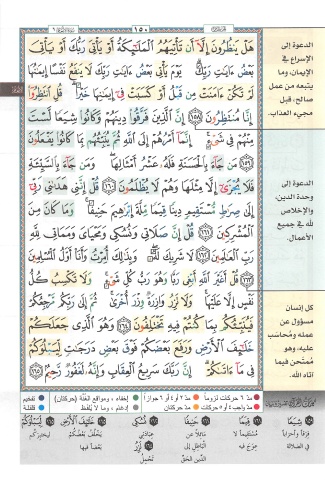 ١٥٠
هَلْ يَنظُرُونَ إِلَّآ أَن تَأْتِيَهُمُ ٱلْمَلَٰٓئِكَةُ أَوْ يَأْتِىَ رَبُّكَ أَوْ يَأْتِىَ
بَعْضُ ءَايَٰتِ رَبِّكَ ۗ يَوْمَ يَأْتِى بَعْضُ ءَايَٰتِ رَبِّكَ لَا يَنفَعُ نَفْسًا إِيمَٰنُهَا
لَمْ تَكُنْ ءَامَنَتْ مِن قَبْلُ أَوْ كَسَبَتْ فِىٓ إِيمَٰنِهَا خَيْرًا ۗ قُلِ ٱنتَظِرُوٓا۟
إِنَّا مُنتَظِرُونَ ١٥٨ إِنَّ ٱلَّذِينَ فَرَّقُوا۟ دِينَهُمْ وَكَانُوا۟ شِيَعًا لَّسْتَ
مِنْهُمْ فِى شَىْءٍ ۚ إِنَّمَآ أَمْرُهُمْ إِلَى ٱللَّهِ ثُمَّ يُنَبِّئُهُم بِمَا كَانُوا۟ يَفْعَلُونَ
١٥٩ مَن جَآءَ بِٱلْحَسَنَةِ فَلَهُۥ عَشْرُ أَمْثَالِهَا ۖ وَمَن جَآءَ بِٱلسَّيِّئَةِ
فَلَا يُجْزَىٰٓ إِلَّا مِثْلَهَا وَهُمْ لَا يُظْلَمُونَ ١٦٠ قُلْ إِنَّنِى هَدَىٰنِى رَبِّىٓ
إِلَىٰ صِرَٰطٍ مُّسْتَقِيمٍ دِينًا قِيَمًا مِّلَّةَ إِبْرَٰهِيمَ حَنِيفًا ۚ وَمَا كَانَ مِنَ
ٱلْمُشْرِكِينَ ١٦١ قُلْ إِنَّ صَلَاتِى وَنُسُكِى وَمَحْيَاىَ وَمَمَاتِى لِلَّهِ
رَبِّ ٱلْعَٰلَمِينَ ١٦٢ لَا شَرِيكَ لَهُۥ ۖ وَبِذَٰلِكَ أُمِرْتُ وَأَنَا۠ أَوَّلُ ٱلْمُسْلِمِينَ
١٦٣ قُلْ أَغَيْرَ ٱللَّهِ أَبْغِى رَبًّا وَهُوَ رَبُّ كُلِّ شَىْءٍ ۚ وَلَا تَكْسِبُ كُلُّ
نَفْسٍ إِلَّا عَلَيْهَا ۚ وَلَا تَزِرُ وَازِرَةٌ وِزْرَ أُخْرَىٰ ۚ ثُمَّ إِلَىٰ رَبِّكُم مَّرْجِعُكُمْ
فَيُنَبِّئُكُم بِمَا كُنتُمْ فِيهِ تَخْتَلِفُونَ ١٦٤ وَهُوَ ٱلَّذِى جَعَلَكُمْ
خَلَٰٓئِفَ ٱلْأَرْضِ وَرَفَعَ بَعْضَكُمْ فَوْقَ بَعْضٍ دَرَجَٰتٍ لِّيَبْلُوَكُمْ
فِى مَآ ءَاتَىٰكُمْ ۗ إِنَّ رَبَّكَ سَرِيعُ ٱلْعِقَابِ وَإِنَّهُۥ لَغَفُورٌ رَّحِيمٌ ١٦٥
الدعوة إلى
الإسراع في
الإيمان، وما
يتبعه من عمل
صالح، قبل
مجيء العذاب.
الدعوة إلى
وحدة الدين،
والإخلاص
لله في جميع
الأعمال.
كل إنسان
مسؤول عن
عمله ومُحاسَب
عليه، وهو
ممتحن فيما
آتاه الله.
مد ٦ حركات لزوماً
مد ٢ أو ٤ أو ٦ جوازاً
إخفاء، ومواقع الغُنَّة (حركتان)
تفخيم
مد واجب ٤ أو ٥ حركات
مد حركتان
إدغام، وما لا يُلفَظ
قلقلة
شِيَعًا
فِرَقاً وأحزاباً
في الضلالة
قِيَمًا
مستقيماً لا
عوج فيه
حَنِيفًا
مائلاً عن
الباطل إلى
الدين الحق
نُسُكِي
عبادتي
خَلَائِفَ الأَرْضِ
يخلُفُ بعضكم
بعضاً فيها
لِيَبْلُوَكُمْ
ليختبركم